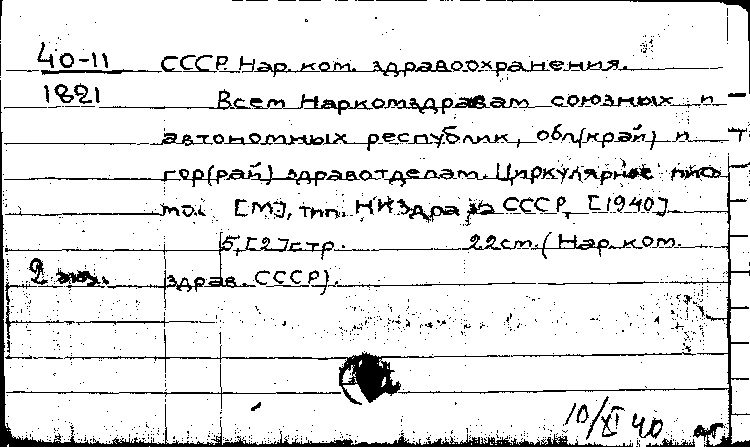 40-11 СССР. Нар. ком. здравоохранения.
1821 Всем Наркомздравам союзных и
автономных республик, обл(край) и
гор(рай) здравотделам. Циркулярное пись
мо. [М], тип. НКЗдрава СССР, [1940].
5,[2]стр. 22см. (Нар. ком.
2 экз. здрав. СССР).
10/XI 40